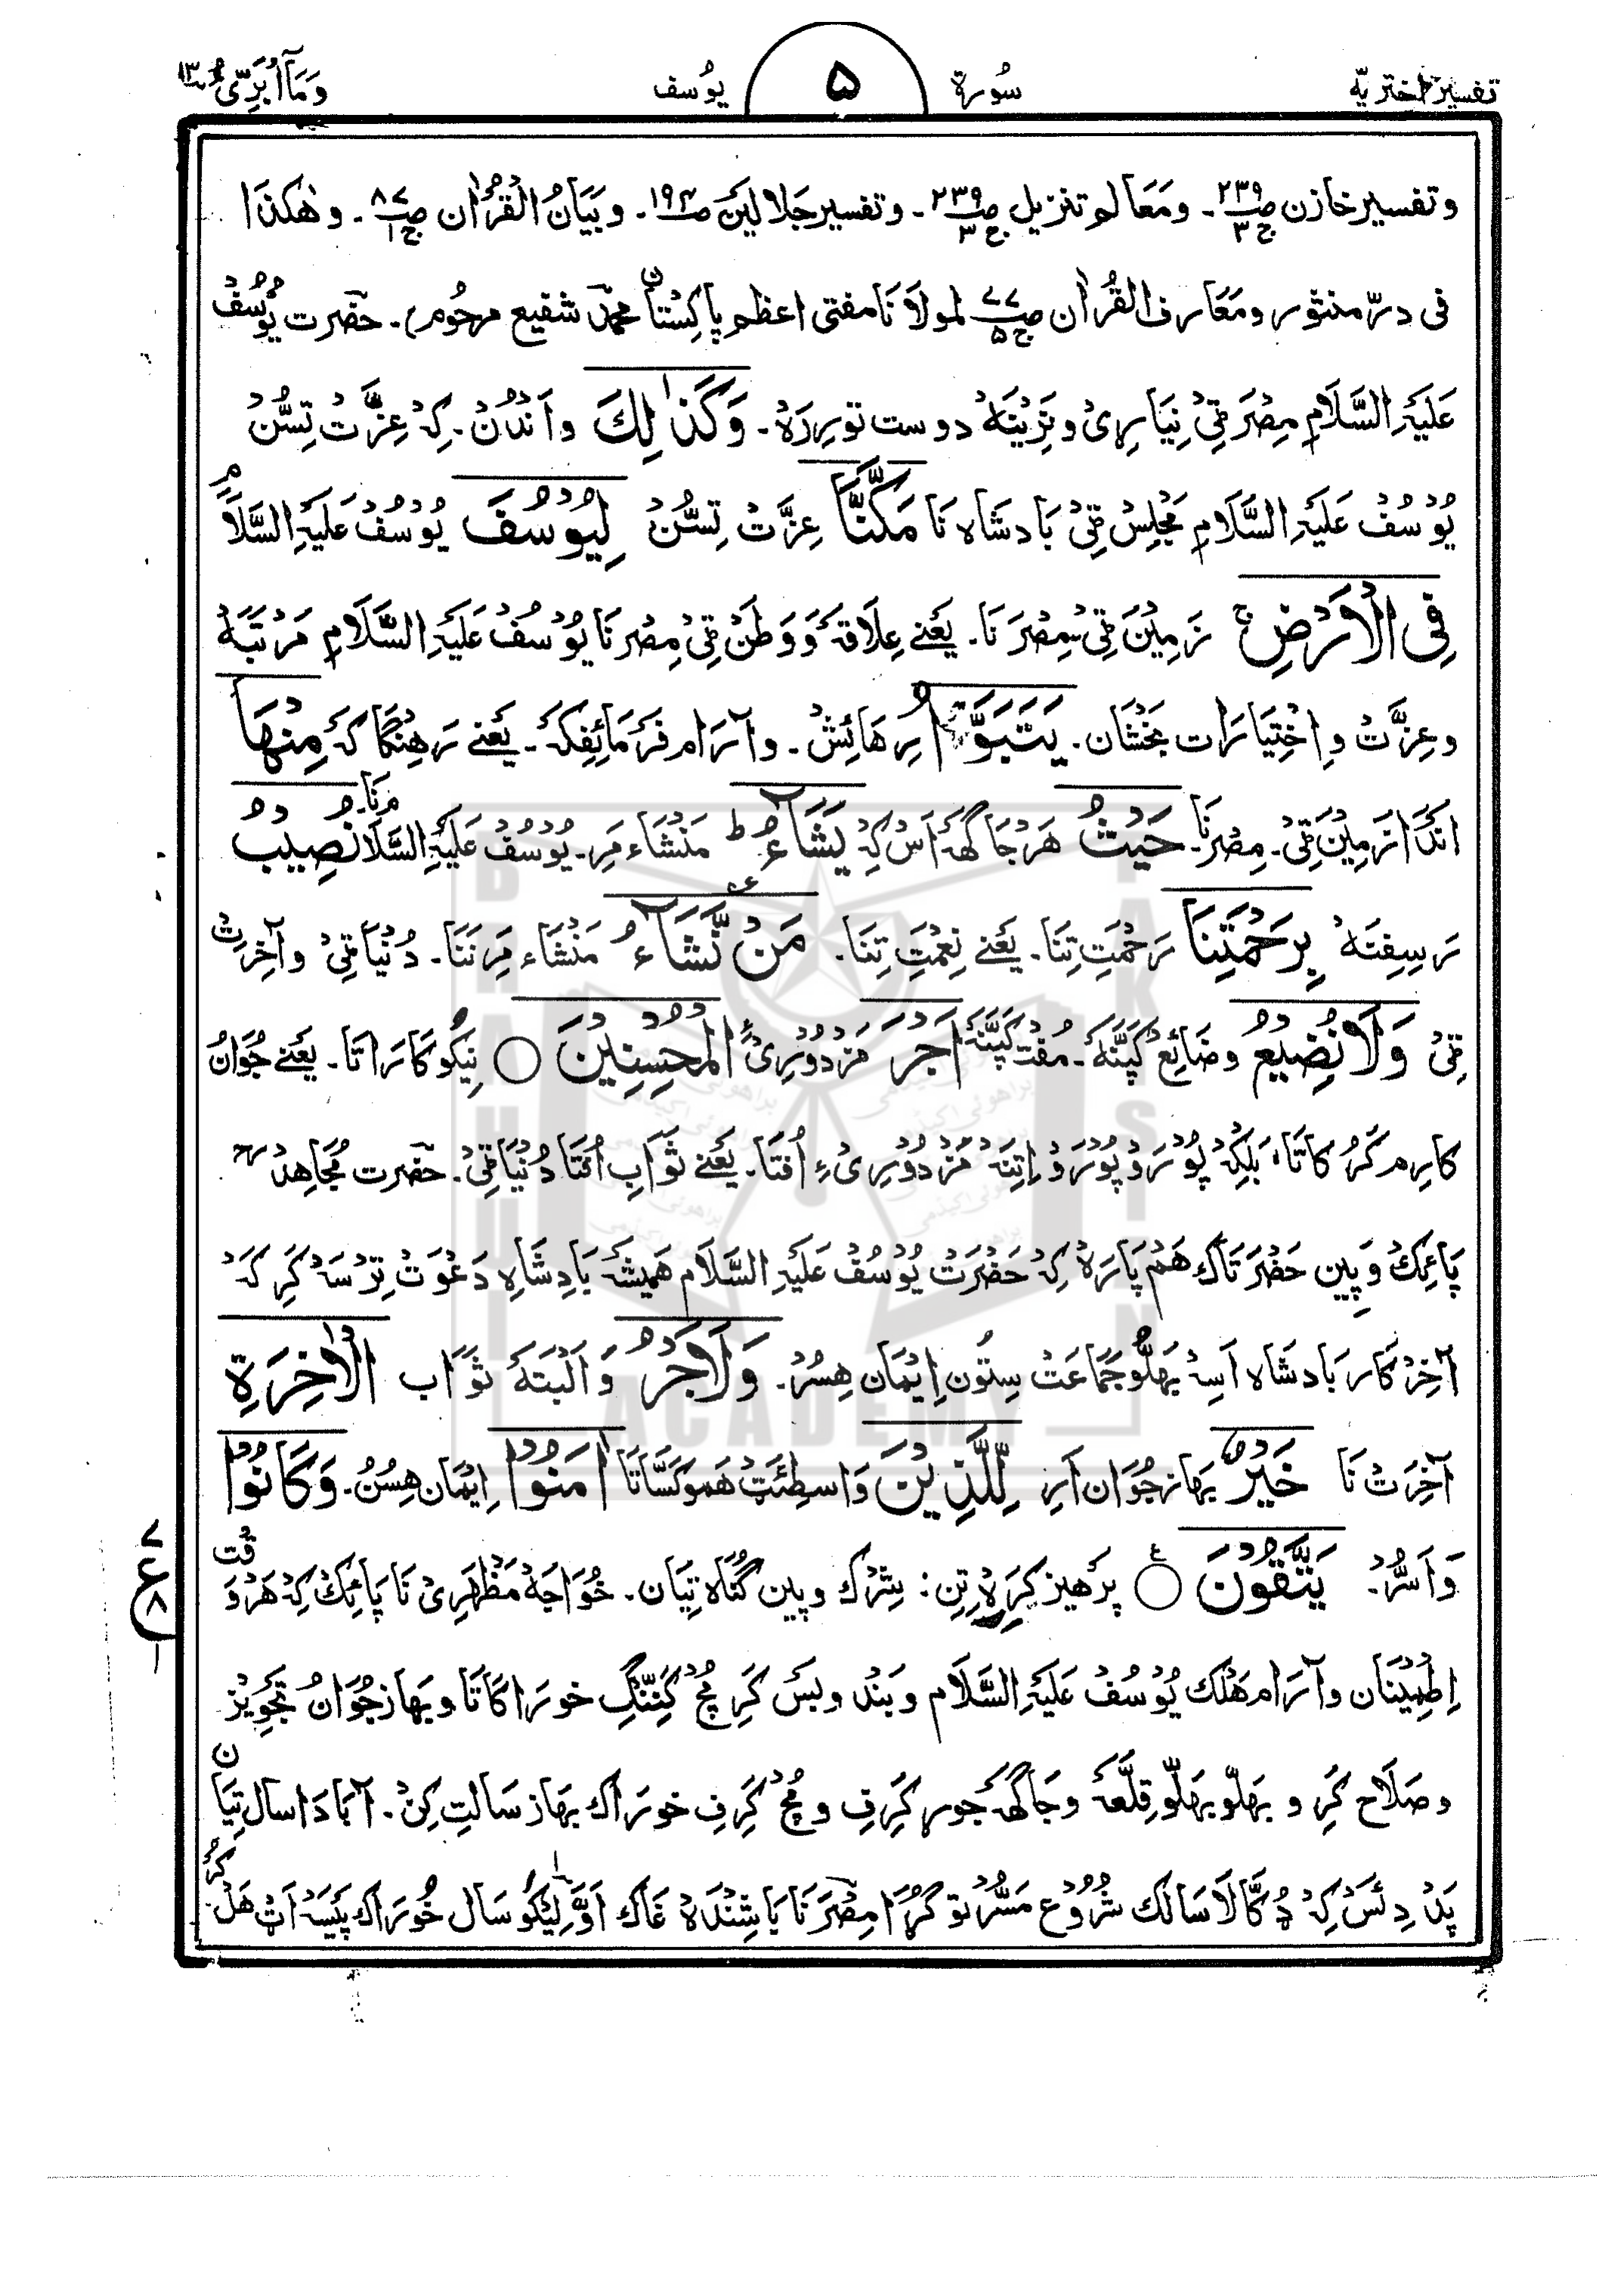 تفسیر اختریه سُورة ۵ یوُسف وَمَآ اُبَرِّئُ ١٣
و تفسیر خازن ص۲۳۹ ج۳ ۔ ومَعَالم تنزیل ص۲۳۹ ج۳ ۔ و تفسیر جَلالیَن ص۱۹۴ ۔ و بَیَانُ القُرْاٰن ص۸۷ ج۱ ۔ و هٰکذَا
فی درّ منثور و مَعَارف القُراٰن ص۷۷ ج۵ لمولاَنَا مفتی اعظم پاکِسْتان محمّد شفیع مرحُوم) ۔ حضرت یُوسُفْ
عَلَیَہِ السَّلَامِ مِصْرَ ٹیْ نِیَابِرِیْ و نَزِیْنَهْ دوست تورِرَهْ ۔ وَکَذٰلِكَ و اَنْدُنْ ۔ کِہْ عِزَّتْ تِسُّنْ
یُوْسُفْ عَلَیَہِ السَّلَامِ مَجْلِسْ ٹیْ بَادشَاہ نَا مَکَّنَّا عِزَّتْ تِسُّنْ لِیُوْسُفَ یُوْسُفْ عَلَیَہِ السَّلَامْ
فِی الْاَرْضِ ج زَمِیْنَ ٹیْ مِصْرَ نَا ۔ یَعْنے عِلَاقَہ وَ وَطَنْ ٹیْ مِصْرنَا یُوْسُفْ عَلَیَہِ السَّلَام مَرْتَبَہْ
و عِزَّتْ و اِخْتِیَارَات بَخْشَان ۔ یَتَبَوَّاُ رِهَائِشْ ۔ و آرَام فَرْمَائِفِكَہْ ۔ یَعْنے رَهِنْگا كَہْ مِنْهَا
اَنْدَا زَمِیْنَ ٹیْ ۔ مِصْرنَا ۔ حَیْثُ هَرْجَاگَهْ اَسْ کِہْ یَشَآءُ ط مَنْشَاء مَرِ ۔ یُوْسُفْ عَلَیَہِ السَّلَامنَا ۔ نُصِیْبُ
رَسِفِنَهْ بِرَحْمَتِنَا رَحْمَتِ تِنَا ۔ یَعْنے نِعْمَتِ تِنَا ۔ مَنْ نَّشَآءُ مَنْشَاء مَرِ نَنَا ۔ دُنْیَا ٹیْ و آخِرِتْ
ٹیْ وَلَا نُضِیْعُ و ضَائِعْ كَپَّنَہْ ۔ مُفْت كَپَّنَہْ اَجْرَ مَزْدُوْرِیْ الْمُحْسِنِیْنَ ○ نِیْكُوكَارَاتَا ۔ یَعْنے جُوَانُ
كارِم كَرُ كَاتَا، بَلْكِہْ پُوْرَوْ پُوْرَوْ اِتِنَہْ مَزْدُوْرِیْ ءِ اُفْتَا ۔ یَعْنے ثَوَابِ اُفتَا دُنْیَا ٹیْ ۔ حضرت مُجَاهِدْ رح
پَائِكْ وَ پِین حَضْرَتَاك هَمْ پَارَہْ كِہْ حَضْرَتْ یُوْسُفْ عَلَیَہِ السَّلَام هَمِیْشَہْ بَادِشَاہِ دَعْوَتْ تِرْسَہْ كَرِكَہْ
آخِرْكَار بَادشَاہ اَسِہْ بَهَلُّو جَمَاعَتْ سِتُون اِیْمَان هِسُرْ ۔ وَلَاَجْرُ وَ اَلْبَتَہْ ثَوَاب الْاٰخِرَةِ
آخِرَتْ نَا خَیْرٌ بَهَاز جُوَان اَرِ لِلَّذِیْنَ وَاسطِئَتْ هَمو كَسَّاتَا اٰمَنُوْا اِیْمَان هِسُنُ ۔ وَكَانُوْا
وَ اَسُّرْ ۔ یَتَّقُوْنَ ○ پَرْهیز كَرَہْ تِنِ : شِرْك و پین گُنَاہ تِیَان ۔ خُوَاجَہْ مَظْهَرِیْ نَا پَائِكْ كِہْ هَرْوَقْت
اِطْمِیْنَان و آرَام هَلْك یُوْسُفْ عَلَیَہِ السَّلَام و بَنْد و بَسْ كَرِ مُچْ كَنِّنْگِ خورَاكَاتَا و بَهَاز جُوَانُ تَجْوِیْز
و صَلَاح كَرِ و بَهَلّو بَهَلّو قِلَّعَہ و جَاگَهْ جور كَرِفِ و مُچْ كَرِفِ خورَاك بَهَاز سَالَتِ كِنْ ۔ آبَادَا سال تِیَان
پَدْ دِئَسْ كِہْ دُكَّالَا سَالَك شُرُوْع مَسُّرْ تو كَرْا مِصْرنَا بَاشِنْدَہْ غَاك اَوَّلِیْكُو سَال خُورَاك پَیْسَہْ اَتْ هَلْكُرْ
ع ۷ ۸ ۱
BRAHUI ACADEMY PAKISTAN